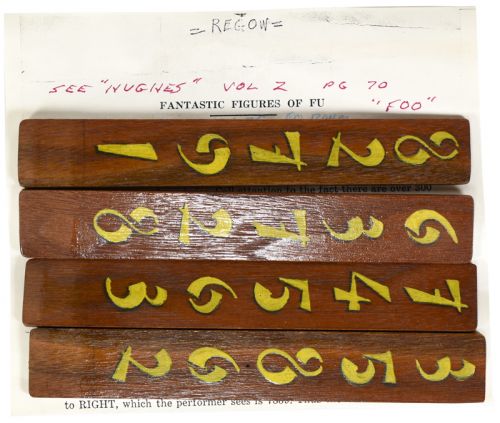 = REGOW =
SEE "HUGHES" VOL 2 PG 70
FANTASTIC FIGURES OF FU
"FOO"
1 6 7 2 8
attention to the fact there are over 300
8 2 7 3 6
3 6 5 4 7
2 6 8 5 3
to RIGHT, which the performer sees is